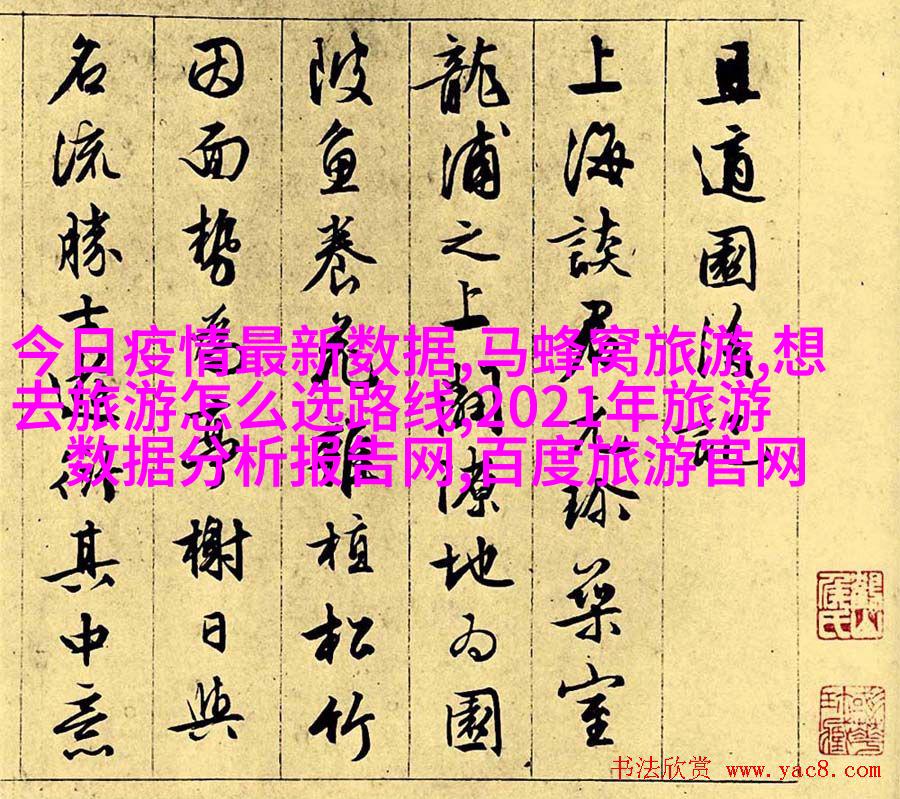 且適園游記
上海談君珍築室
龍浦之上闢隙地为園
陂魚養花雜植松竹
因面勢為亭榭日與
名流勝士游衍其中意
今日疫情最新数据,马蜂窝旅游,想
去旅游怎么选路线,2021年旅游
数据分析报告网,百度旅游官网
书法欣赏 www.yac8.com